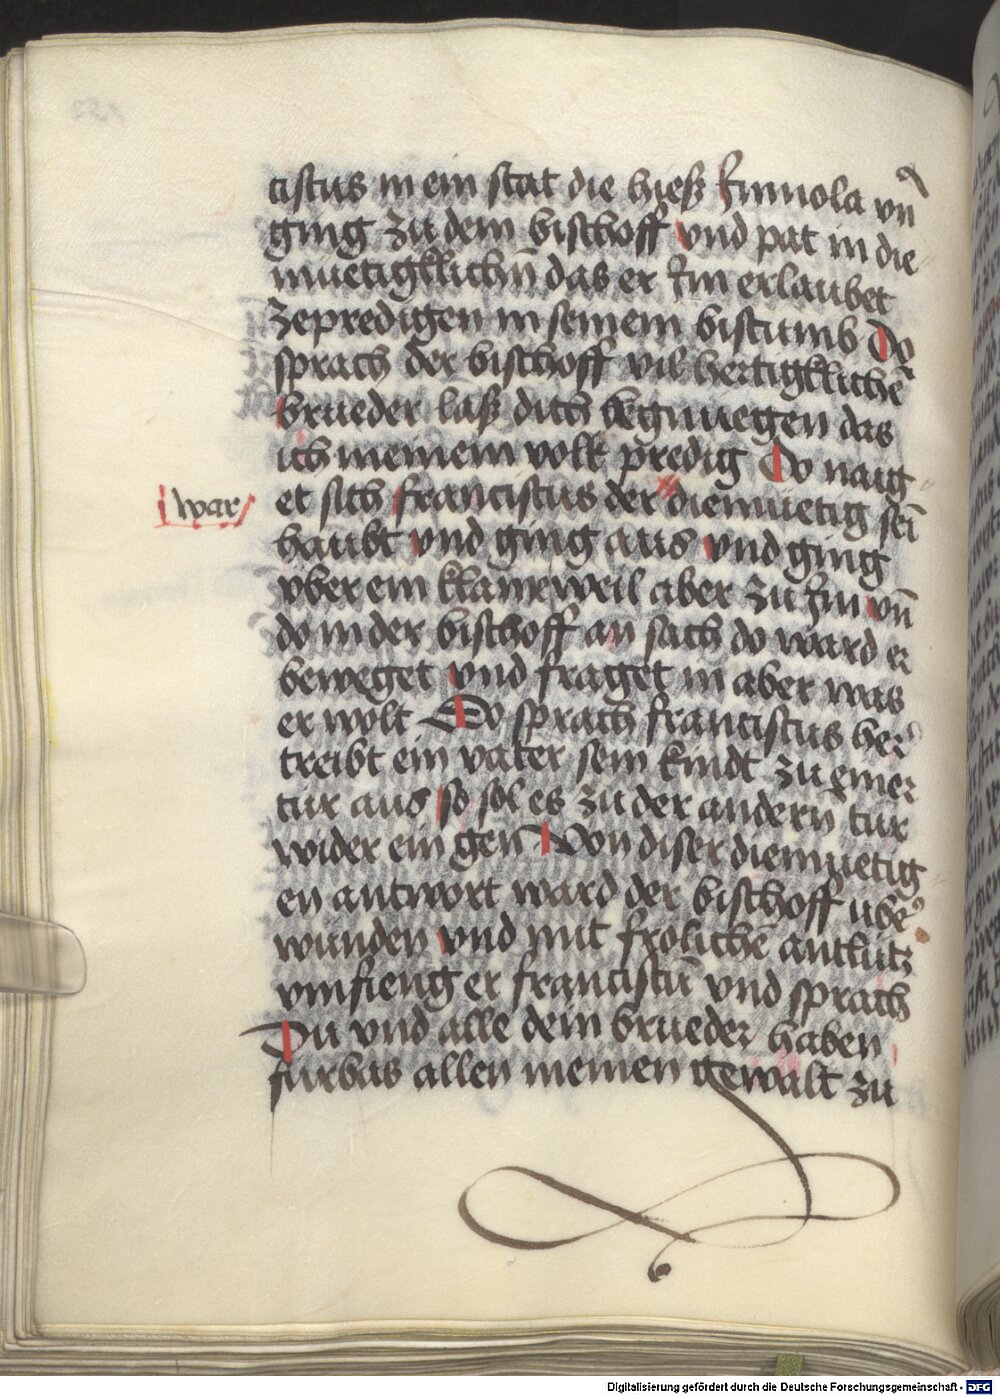 ciscus in ein stat die hiesz Jmuola vn̄
ging zu dem bischoff vnd pat in die
muetigklichn̄ das er Jm erlaubet
zepredigen in seinem bistumb Do
sprach der bischoff vil hertigklichē
brueder lasz dich begnuegen das
ich meinem volk predig Do naig
et sich franciscus der diemuetig sei
war
haubt vnd ging aus vnd ging
vber ein klaineweil aber zu Jm vn̄
do in der bischoff an sach do ward er
beweget vnd fraget in aber was
er wolt Do sprach franciscus her
treibt ein vater sein kindt zu einer
tür aus so sol es zu der andern tür
wider ein gen Von diser diemuetig
en antwort ward der bischoff übe
wunden vnd mit frolichē antlütz
vmfieng er franciscū vnd sprach
Du vnd alle dein brueder haben
furbas allen meinen gewalt zu
Digitalisierung gefördert durch die Deutsche Forschungsgemeinschaft - DFG